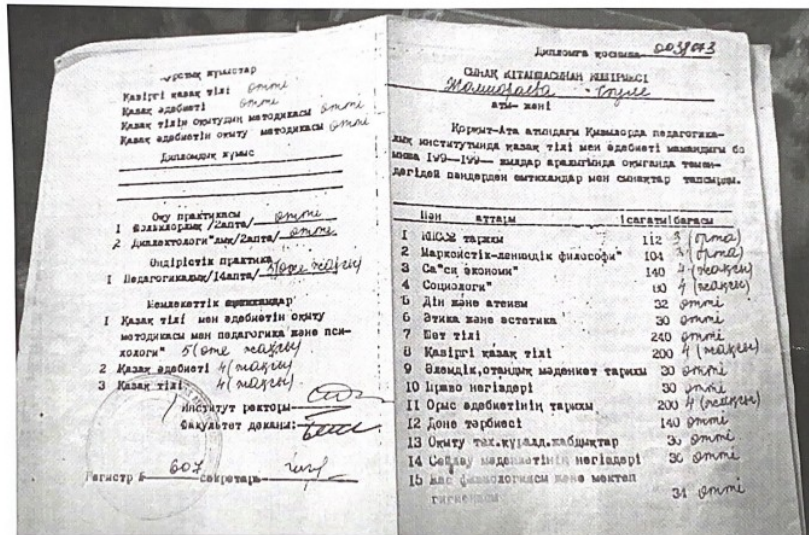 Курстық жұмыстар
Қазіргі қазақ тілі өтті
Қазақ әдебиеті өтті
Қазақ тілін оқытудың методикасы өтті
Қазақ әдебиетін оқыту методикасы өтті
Дипломдық жұмыс
Оқу практикасы
1 Фольклорлық /2апта/ өтті
2 Диалектологи"лық/2апта/ өтті
Өндірістік практика
1 Педагогикалық/14апта/ 5(өте жақсы)
Мемлекеттік емтихандар
1 Қазақ тілі мен әдебиетін оқыту
методикасы мен педагогика және пси-
хологи" 5(өте жақсы)
2 Қазақ әдебиеті 4(жақсы)
3 Қазақ тілі 4(жақсы)
Институт ректоры
Факультет деканы:
Регистр № 607 секретарь
Дипломға қосымша
СЫНАҚ КІТАПШАСЫНАН КӨШІРМЕСІ
аты- жөні
Қорқыт-Ата атындағы Қызылорда педагогика-
лық институтында қазақ тілі мен әдебиеті мамандығы бо
йынша 199—199— жылдар аралығында оқығанда төмен-
дегідей пәндерден емтихандар мен сынақтар тапсырды.
Пән аттары !сағаты!бағасы
1 КПСС тарихы 112 3 (орта)
2 Маркойстік-лениндік философи" 104 3 (орта)
3 Са"си экономи" 140 4 (жақсы)
4 Социологи" 80 4 (жақсы)
5 Дін және атеизм 32 өтті
6 Этика және эстетика 30 өтті
7 Шет тілі 240 өтті
8 Қазіргі қазақ тілі 200 4 (жақсы)
9 Әлемдік,отандық мәдениет тарихы 30 өтті
10 Право негіздері 30 өтті
11 Орыс әдебиетінің тарихы 200 4 (жақсы)
12 Дене тәрбиесі 140 өтті
13 Оқыту тех.құралд.жабдықтар 30 өтті
14 Сөйлеу мәдениетінің негіздері 30 өтті
15 Жас физиологиясы және мектеп
гигиенасы 34 өтті